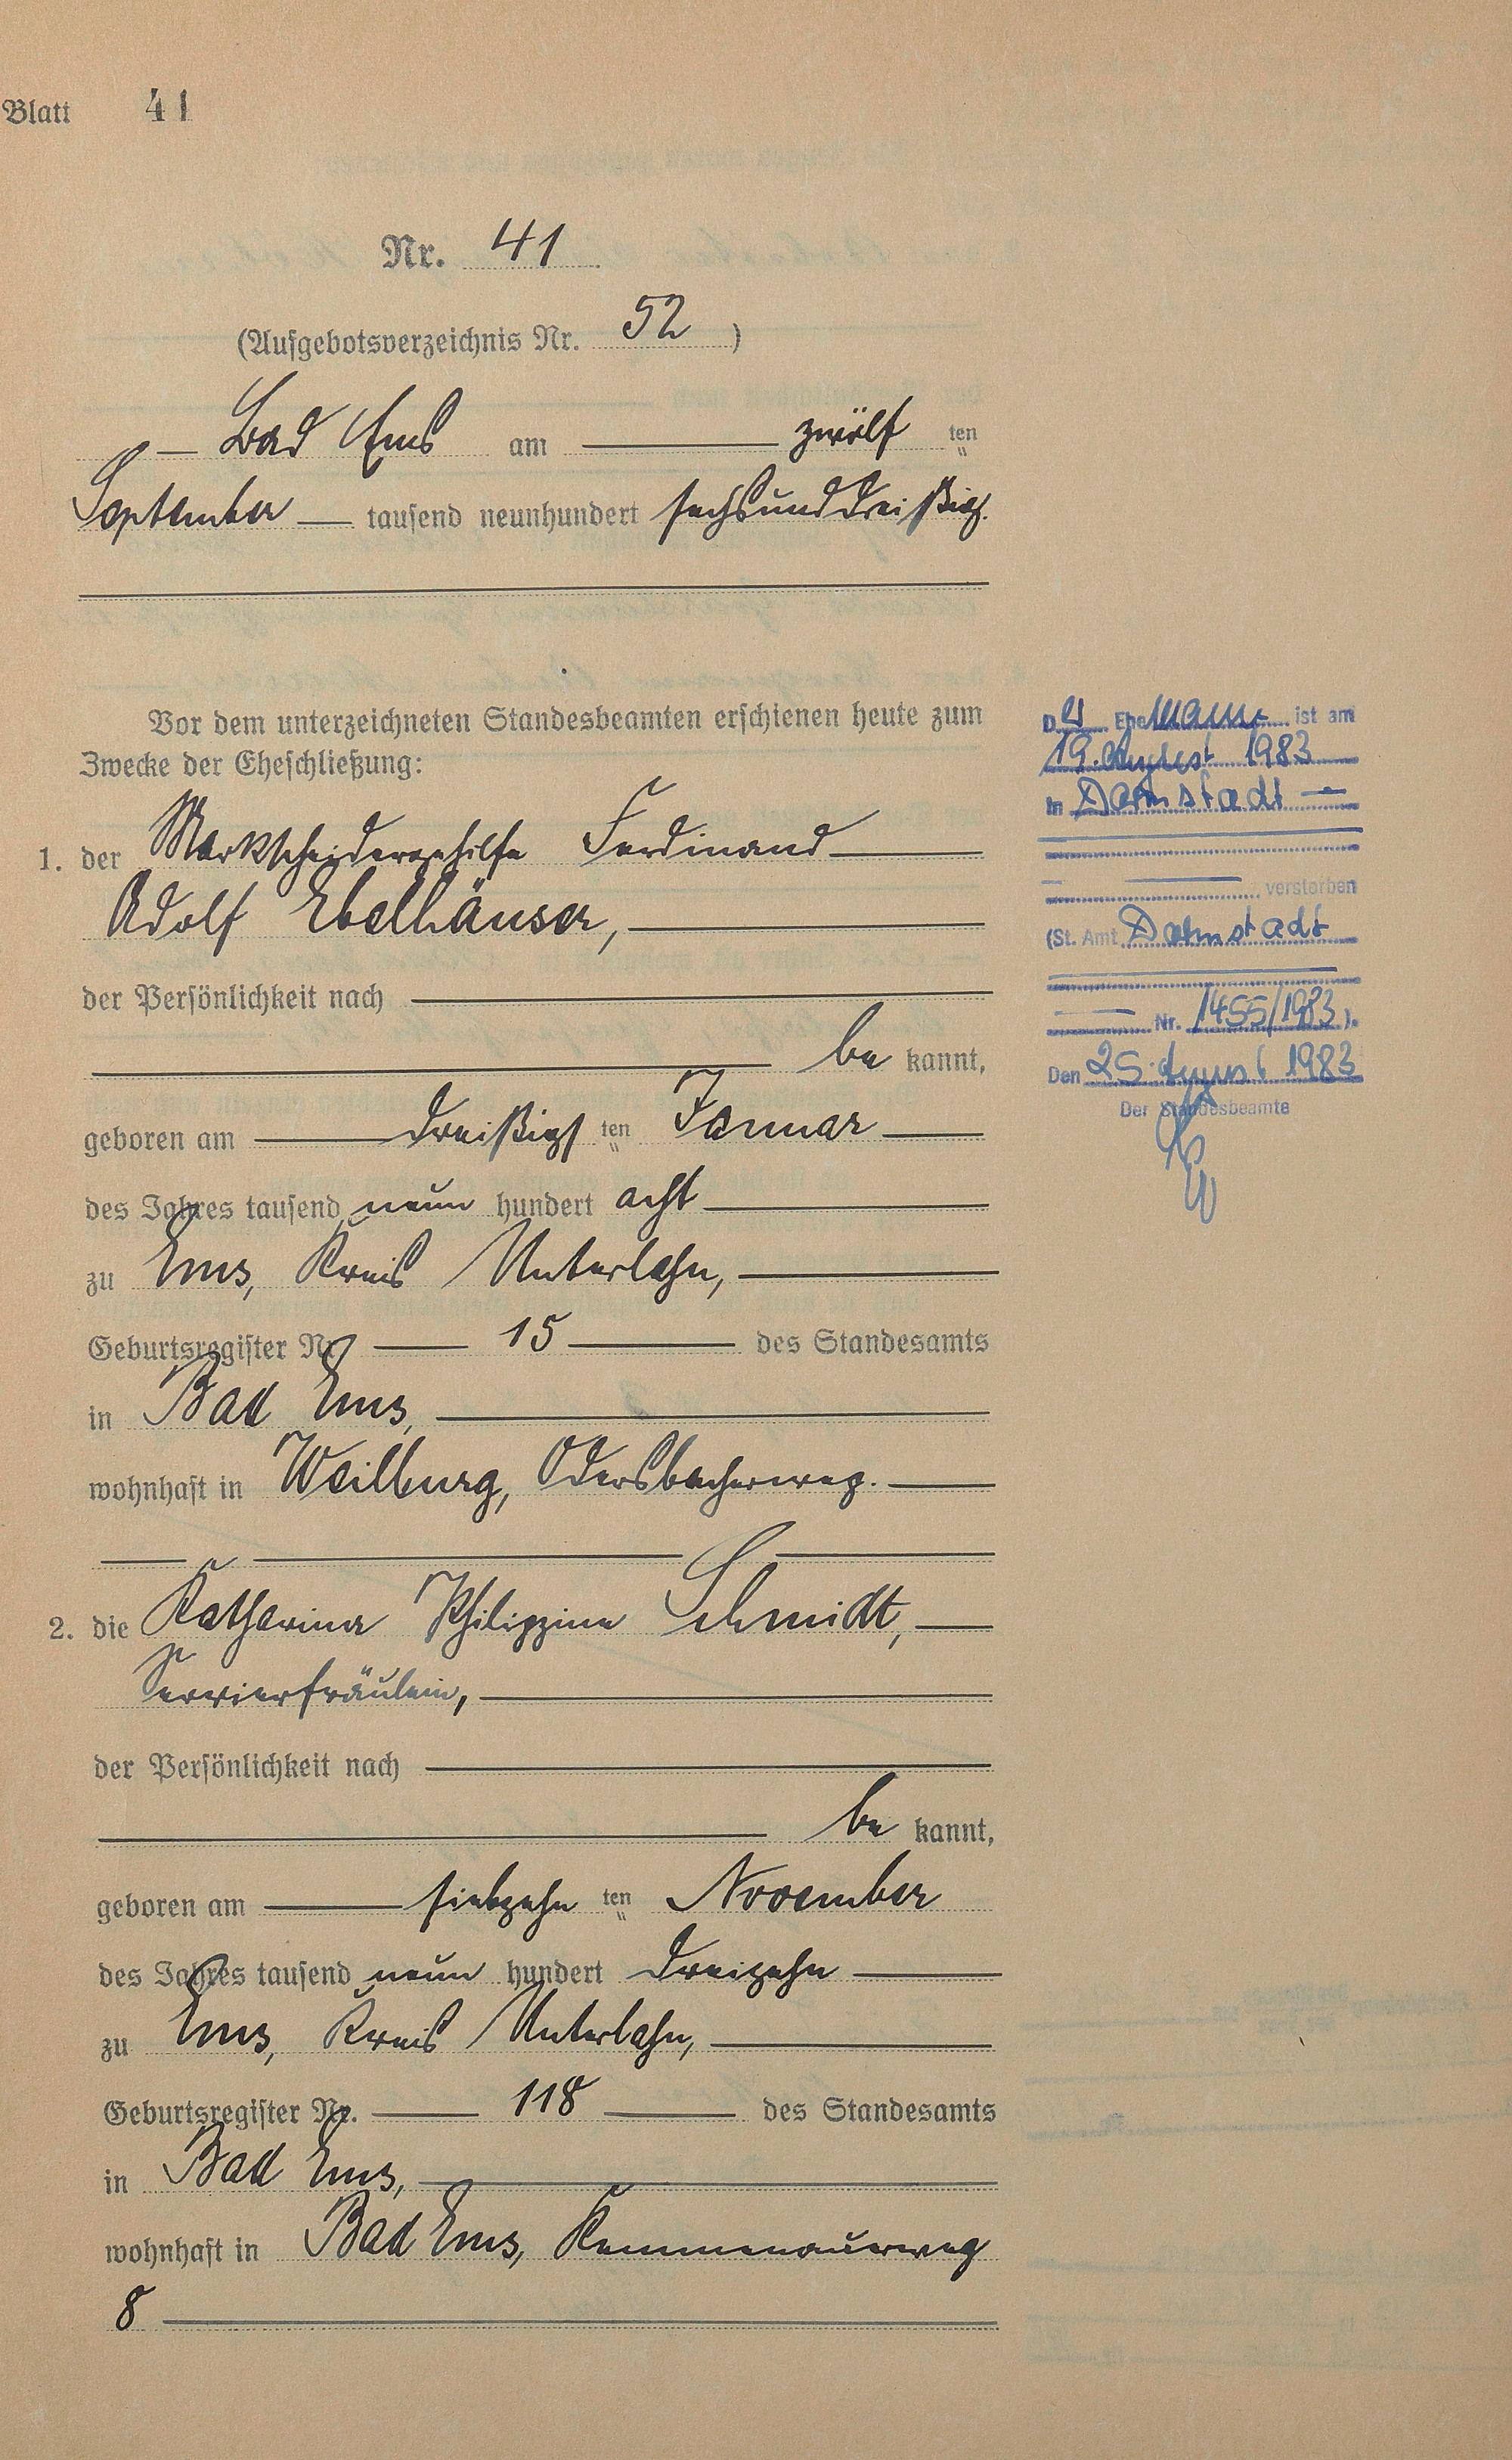 Blatt 41
Nr. 41
(Aufgebotsverzeichnis Nr. 52 )
Bad Ems am zwölf ten
September tausend neunhundert sechsunddreißig.
Vor dem unterzeichneten Standesbeamten erschienen heute zum
Zwecke der Eheschließung:
1. der Markscheidergehilfe Ferdinand
Adolf Ebelhäuser,
der Persönlichkeit nach
be kannt,
geboren am dreißigs ten Januar
des Jahres tausend neun hundert acht
zu Ems, Kreis Unterlahn,
Geburtsregister Nr. 15 des Standesamts
in Bad Ems,
wohnhaft in Weilburg, Odersbacherweg.
2. die Katharina Philippine Schmidt,
Servierfräulein,
der Persönlichkeit nach
be kannt,
geboren am siebzehn ten November
des Jahres tausend neun hundert dreizehn
zu Ems, Kreis Unterlahn,
Geburtsregister Nr. 118 des Standesamts
in Bad Ems,
wohnhaft in Bad Ems, Kemmenauerweg
8
D er Ehemann ist am
19. August 1983
in Darmstadt
verstorben
(St. Amt Darmstadt
Nr. 1455/1983).
Den 25. August 1983
Der Standesbeamte